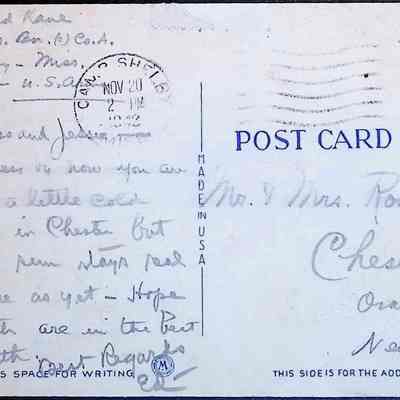 d Kane
Bn. (s) Co. A.
y - Miss.
- U.S.A.
CAMP SHELBY
NOV 20
2 PM
1942
ss and Jessie,
ess by now you are
a little cold
in Chester but
stays real
e as yet - Hope
th are in the best
th. Best Regards
Ed
S SPACE FOR WRITING
M
MADE IN USA
POST CARD
Mr. & Mrs. Ro
Ches
Ora
Ne
THIS SIDE IS FOR THE ADD